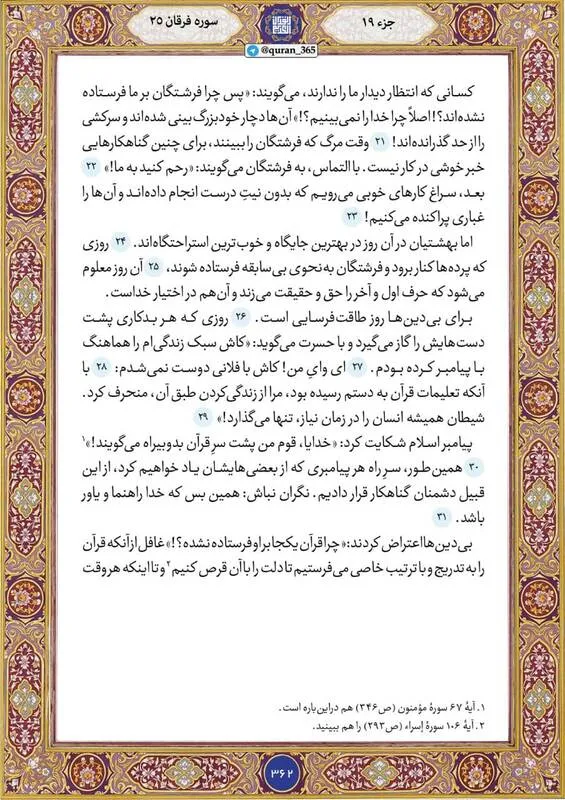 جزء ۱۹
سوره فرقان ۲۵
@quran_365
کسانی که انتظار دیدار ما را ندارند، می‌گویند: «پس چرا فرشتگان بر ما فرستاده
نشده‌اند؟! اصلاً چرا خدا را نمی‌بینیم؟!» آن‌ها دچار خودبزرگ‌بینی شده‌اند و سرکشی
را از حد گذرانده‌اند! ۲۱ وقت مرگ که فرشتگان را ببینند، برای چنین گناهکارهایی
خبر خوشی در کار نیست. با التماس، به فرشتگان می‌گویند: «رحم کنید به ما!» ۲۲
بعد، سراغ کارهای خوبی می‌رویم که بدون نیتِ درست انجام داده‌اند و آن‌ها را
غباری پراکنده می‌کنیم! ۲۳
اما بهشتیان در آن روز در بهترین جایگاه و خوب‌ترین استراحتگاه‌اند. ۲۴ روزی
که پرده‌ها کنار برود و فرشتگان به‌نحوی بی‌سابقه فرستاده شوند، ۲۵ آن روز معلوم
می‌شود که حرف اول و آخر را حق و حقیقت می‌زند و آن هم در اختیار خداست.
برای بی‌دین‌ها روز طاقت‌فرسایی است. ۲۶ روزی که هر بدکاری پشت
دست‌هایش را گاز می‌گیرد و با حسرت می‌گوید: «کاش سبک زندگی‌ام را هماهنگ
با پیامبر کرده بودم. ۲۷ ای وایِ من! کاش با فلانی دوست نمی‌شدم: ۲۸ با
آنکه تعلیمات قرآن به دستم رسیده بود، مرا از زندگی‌کردن طبق آن، منحرف کرد.
شیطان همیشه انسان را در زمان نیاز، تنها می‌گذارد!» ۲۹
پیامبر اسلام شکایت کرد: «خدایا، قوم من پشت سرِ قرآن بدوبیراه می‌گویند!»۱
۳۰ همین‌طور، سرِ راه هر پیامبری که از بعضی‌هایشان یاد خواهیم کرد، از این
قبیل دشمنان گناهکار قرار دادیم. نگران نباش: همین بس که خدا راهنما و یاور
باشد. ۳۱
بی‌دین‌ها اعتراض کردند: «چرا قرآن یکجا بر او فرستاده نشده؟!» غافل از آنکه قرآن
را به تدریج و با ترتیب خاصی می‌فرستیم تا دلت را با آن قرص کنیم۲ و تا اینکه هر وقت
۱. آیهٔ ۶۷ سورهٔ مؤمنون (ص۳۴۶) هم در این باره است.
۲. آیهٔ ۱۰۶ سورهٔ إسراء (ص۲۹۳) را هم ببینید.
۳۶۲